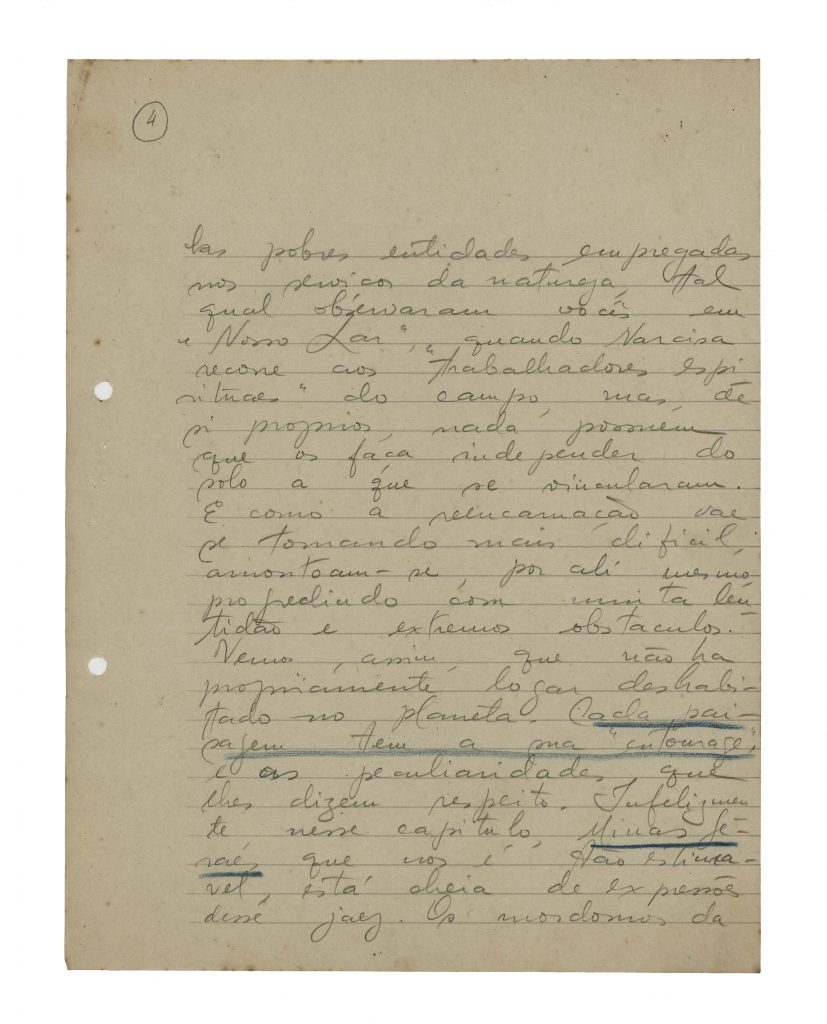 4
las pobres entidades empregadas
nos serviços da natureza, tal
qual observaram vocês em
"Nosso Lar", quando Narcisa
recorre aos "trabalhadores espi
rituaes" do campo, mas, de
si proprios, nada possuem
que os faça independer do
solo a que se vincularam.
E como a reencarnação vae
se tornando mais dificil,
amontoam-se, por ali mesmo,
progredindo com muita len
tidão e extremos obstaculos.-
Vemos, assim, que não ha
propriamente logar deshabi-
tado no planeta. Cada pai-
sagem tem a sua "entourage",
e as peculiaridades que
lhes dizem respeito. Infelizmen
te nesse capitulo, Minas Ge-
raes, que nos é tão estima-
vel, está cheia de expressões
desse jaez. Os mordomos da